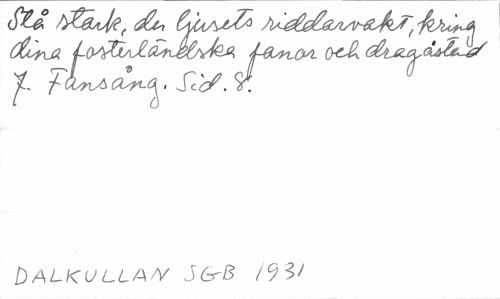 Stå stark, du ljusets riddarvakt, kring
dina fosterländska fanor och dragåstad
7. Fansång. Sid. 8.
DALKULLAN SGB 1931